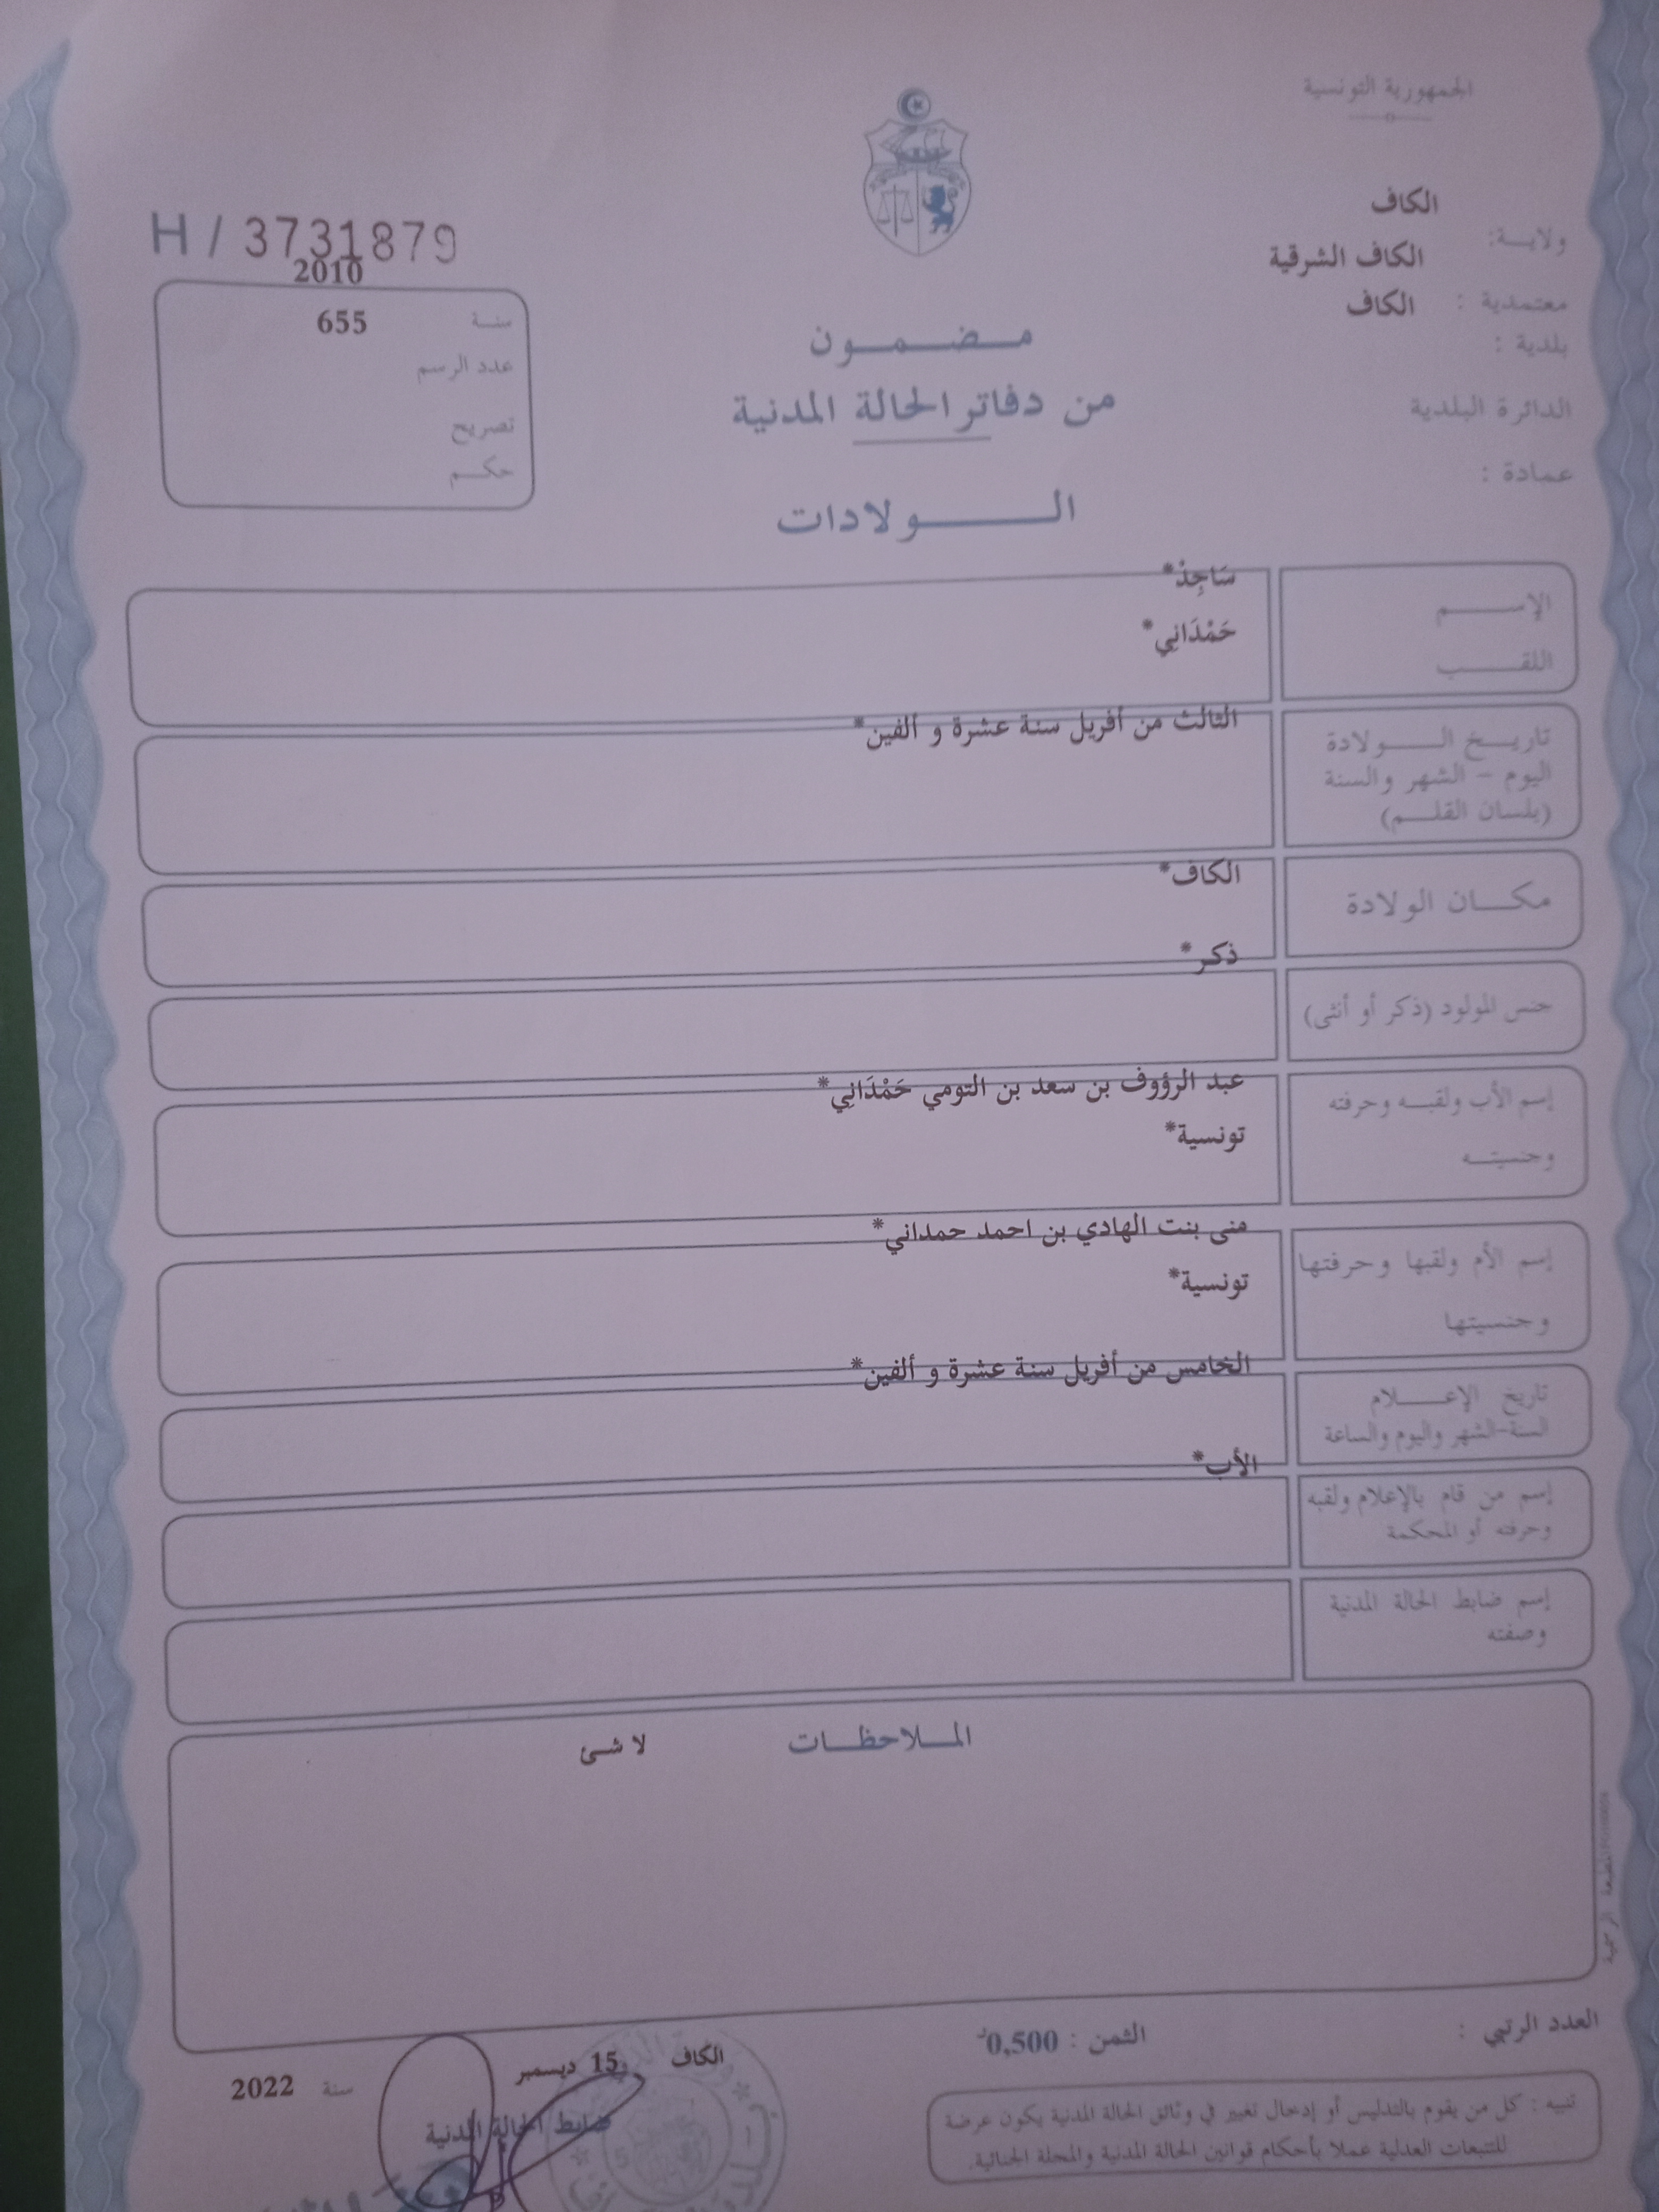 الجمهورية التونسية
ولاية: الكاف
معتمدية : الكاف الشرقية
بلدية : الكاف
الدائرة البلدية
عمادة :
H / 3731879
2010
سنة 655
عدد الرسم
تصريح
حكم
مضمون
من دفاتر الحالة المدنية
الولادات
الإسم سَاجِدْ*
اللقب حَمْدَانِي*
تاريخ الولادة الثالث من أفريل سنة عشرة و ألفين*
اليوم - الشهر والسنة
(بلسان القلم)
مكان الولادة الكاف*
ذكر*
جنس المولود (ذكر أو أنثى)
إسم الأب ولقبه وحرفته عبد الرؤوف بن سعد بن التومي حَمْدَانِي*
وجنسيته تونسية*
إسم الأم ولقبها وحرفتها منى بنت الهادي بن احمد حمداني*
وجنسيتها تونسية*
تاريخ الإعلام الخامس من أفريل سنة عشرة و ألفين*
السنة-الشهر واليوم والساعة
الأب*
إسم من قام بالإعلام ولقبه
وحرفته أو المحكمة
إسم ضابط الحالة المدنية
وصفته
الملاحظات لا شئ
المطبعة الرسمية
العدد الرتبي :
الثمن : 0,500د
الكاف 15 ديسمبر سنة 2022
ضابط الحالة المدنية
تنبيه : كل من يقوم بالتدليس أو إدخال تغيير في وثائق الحالة المدنية يكون عرضة
للتتبعات العدلية عملا بأحكام قوانين الحالة المدنية والمجلة الجنائية.